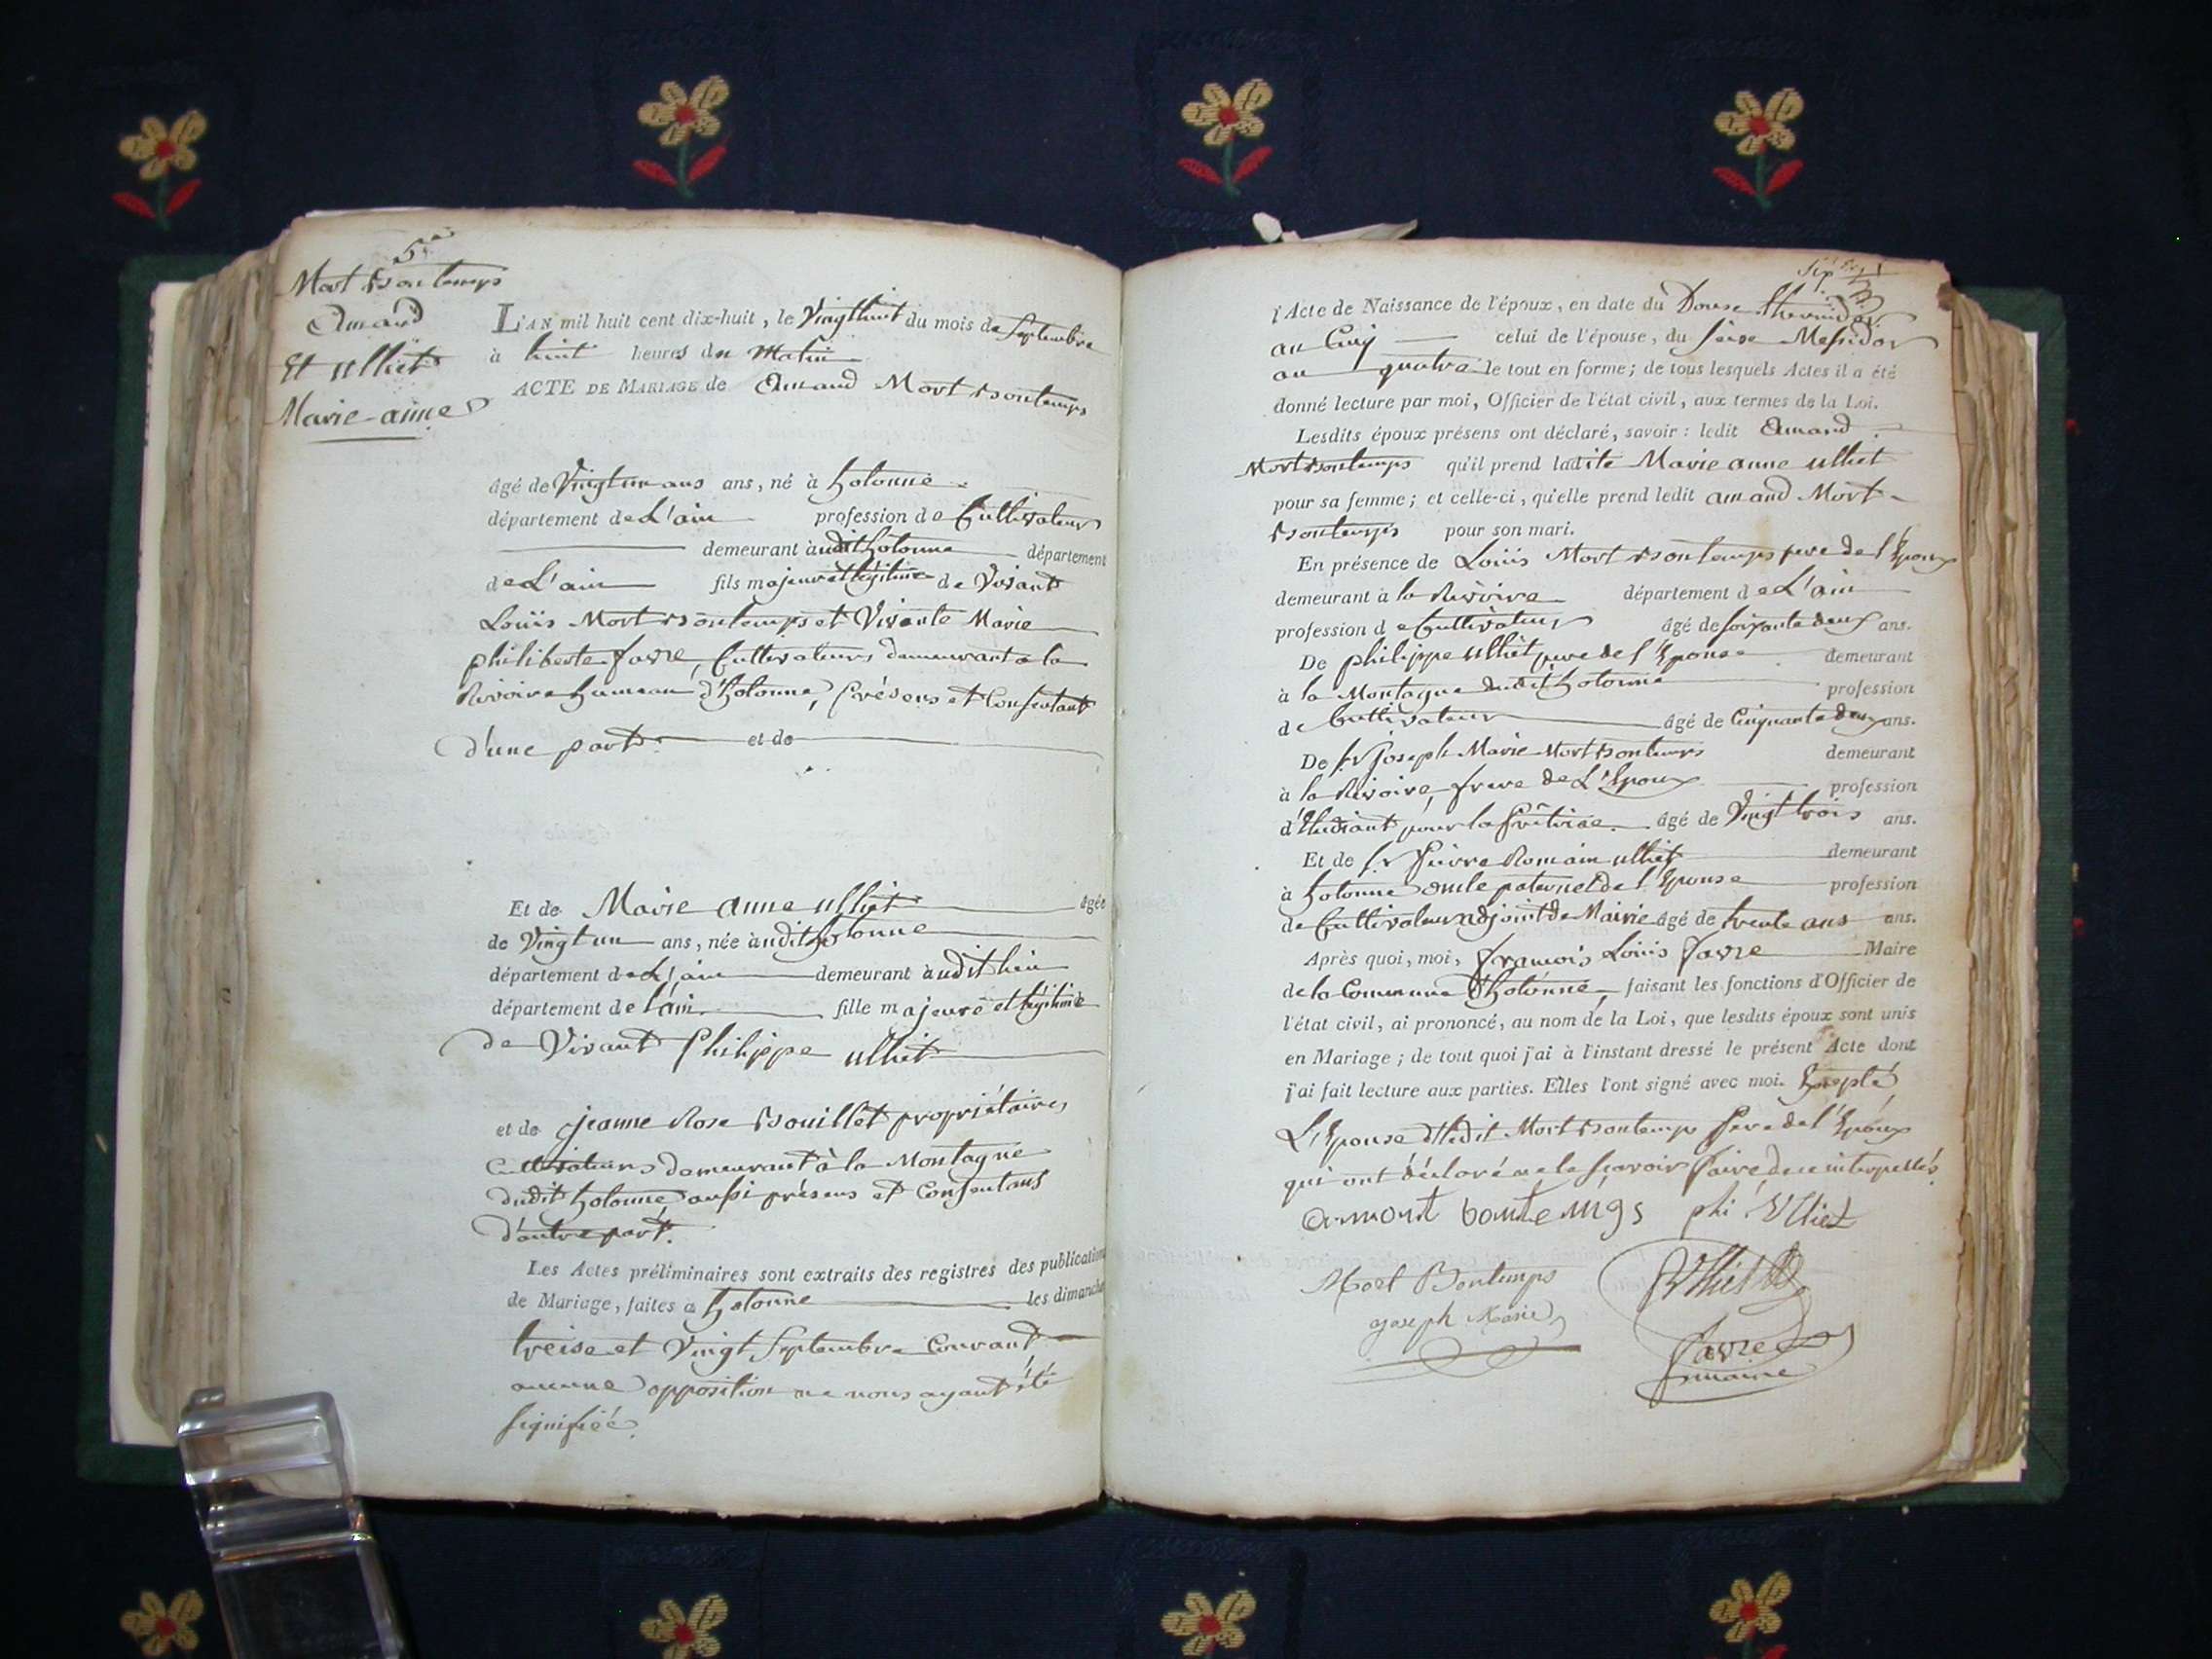 5e
Mort Bontemps
Amand
Et ulliet
Marie-anne
L'AN mil huit cent dix-huit, le Vingthuit du mois de Septembre
à huit heures du Matin
ACTE DE MARIAGE de Amand Mort Bontemps
âgé de Vingt un ans ans, né à hotonne
département de L'ain profession de Cultivateur
demeurant àudit hotonne département
de L'ain fils majeur et légitime de Vivant
Loüis Mort Bontemps et Vivante Marie
philiberte favre, Cultivateurs demeurant a la
Rivoire hameau d'hotonne, Présens et Consentant
d'une part. et de
Et de Marie anne ulliet âgée
de Vingt un ans, née àudit hotonne
département de L'ain demeurant àudit lieu
département de l'ain fille majeure et légitime
de Vivant Philippe ulliet
et de jeanne Rose Bouillet propriétaires
Cultivateurs demeurant à la Montagne
dudit hotonne aussi présens et Consentans
d'autre part.
Les Actes préliminaires sont extraits des registres des publications
de Mariage, faites à hotonne les dimanche
treise et Vingt Septembre Courant
aucune opposition ne nous ayant été
signifiée.
l'Acte de Naissance de l'époux, en date du Douse thermidor
an Cinq celui de l'épouse, du seise Messidor
an quatre le tout en forme; de tous lesquels Actes il a été
donné lecture par moi, Officier de l'état civil, aux termes de la Loi.
Lesdits époux présens ont déclaré, savoir: ledit Amand
Mort Bontemps qu'il prend ladite Marie anne ulliet
pour sa femme; et celle-ci, qu'elle prend ledit amand Mort
Bontemps pour son mari.
En présence de Loüis Mort Bontemps pere de l'Epoux
demeurant à la Rivoire département de L'ain
profession de Cultivateur âgé de soixante deux ans.
De philippe ulliet pere de l'Epouse demeurant
à la Montagne dudit hotonne profession
de Cultivateur âgé de Cinquante deux ans.
De Sr joseph Marie Mort Bontemps demeurant
à la Rivoire, frere de L'Epoux profession
d'Etudiant pour la Prêtrise. âgé de Vingt trois ans.
Et de Sr Pierre Romain ulliet demeurant
à hotonne oncle paternel de l'Epouse profession
de Cultivateur adjoint de Mairie âgé de trente ans ans.
Après quoi, moi, françois Loüis favre Maire
de la Commune d'hotonne, faisant les fonctions d'Officier de
l'état civil, ai prononcé, au nom de la Loi, que lesdits époux sont unis
en Mariage; de tout quoi j'ai à l'instant dressé le présent Acte dont
j'ai fait lecture aux parties. Elles l'ont signé avec moi. Excepté
L'Epouse et ledit Mort Bontemps Pere de l'Epoux
qui ont déclaré ne le sçavoir faire, de ce interpellés.
armont bontemps phi Ulliet
Mort Bontemps
joseph Marie
Ulliet
favre
maire